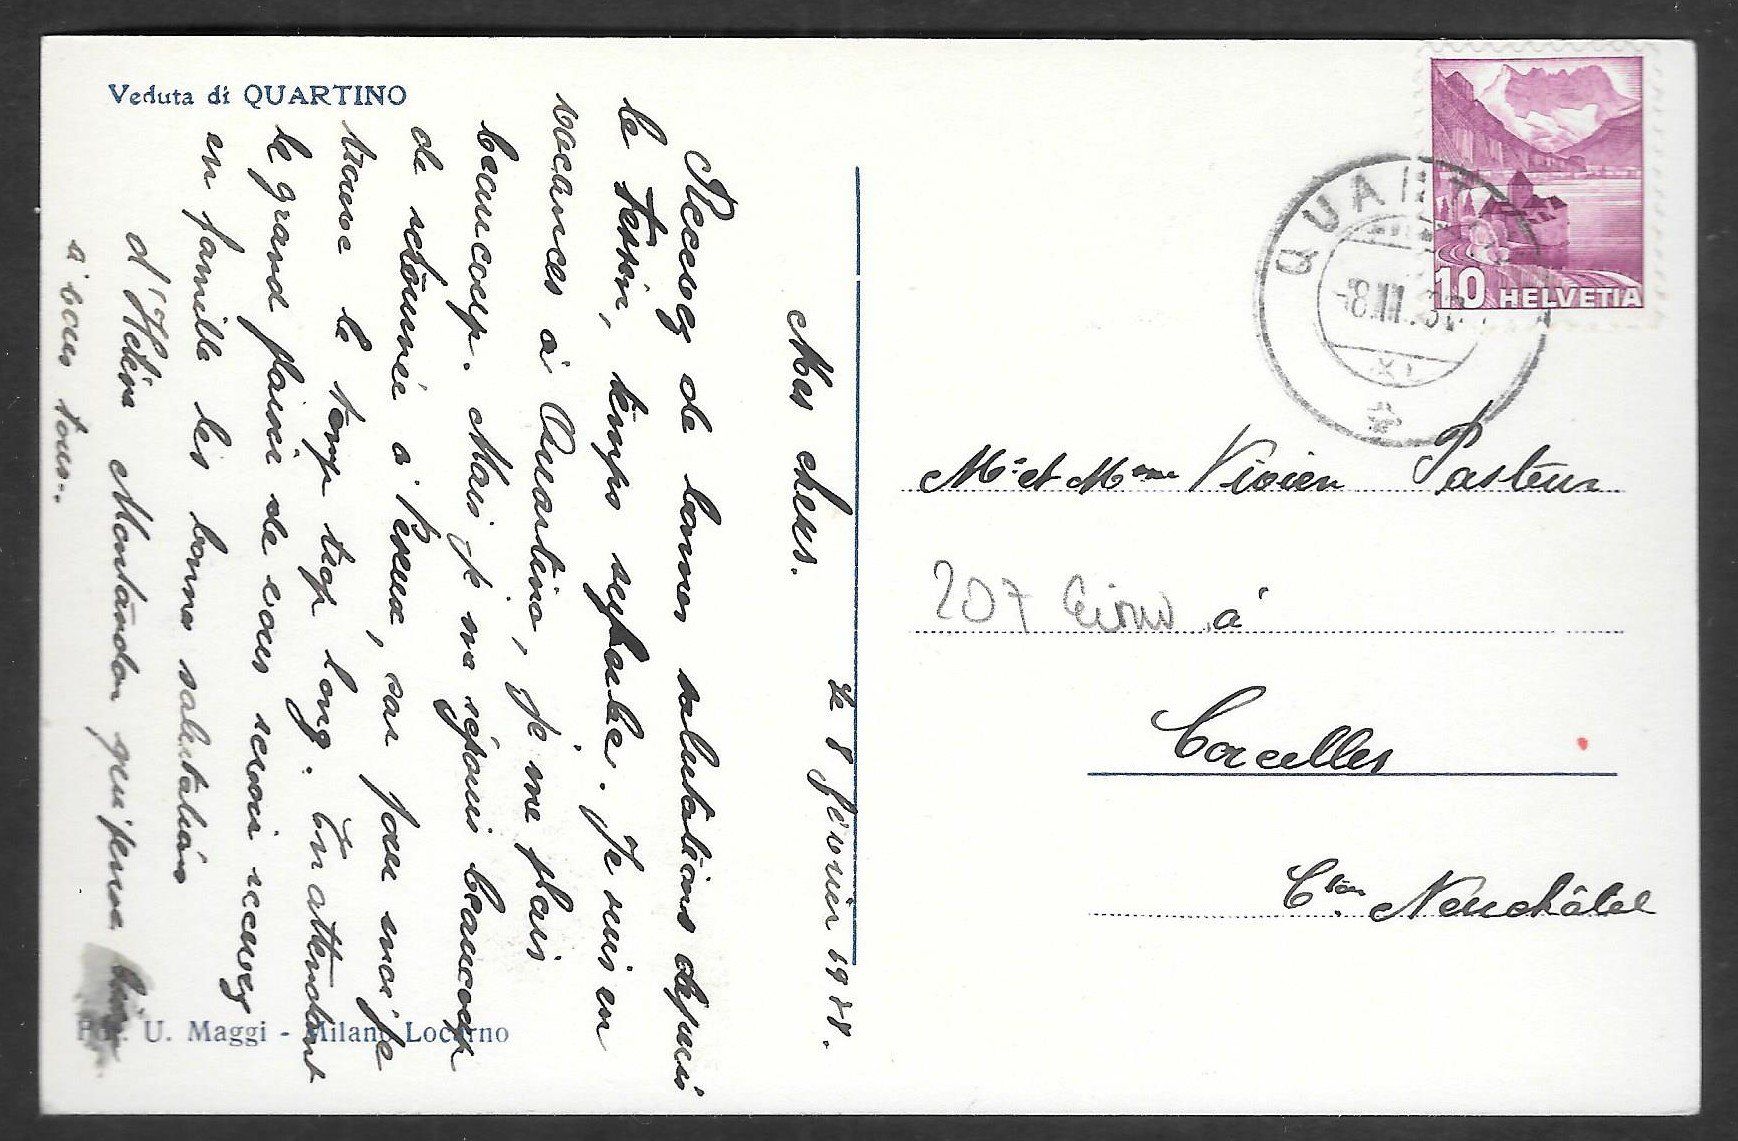 Veduta di QUARTINO
Le 8 février 1938.
Mes chers.
Recevez de bonnes salutations depuis
le Tessin, temps superbe. Je suis en
vacances à Quartino, je me plais
beaucoup. Mais je me réjouis beaucoup
de retournée à Peseux, car pour moi je
trouve le temp trop long. En attendant
le grand plaisir de vous revoir recevez
en famille les bonnes salutations
d'Hélèn Montandon qui pense bien
à vous tous.
U. Maggi - Milano Locarno
10 HELVETIA
QUARTINO
-8.II.38
Mr. et Mme Vivien Pasteur
207 à
Corcelles
Cton. Neuchâtel